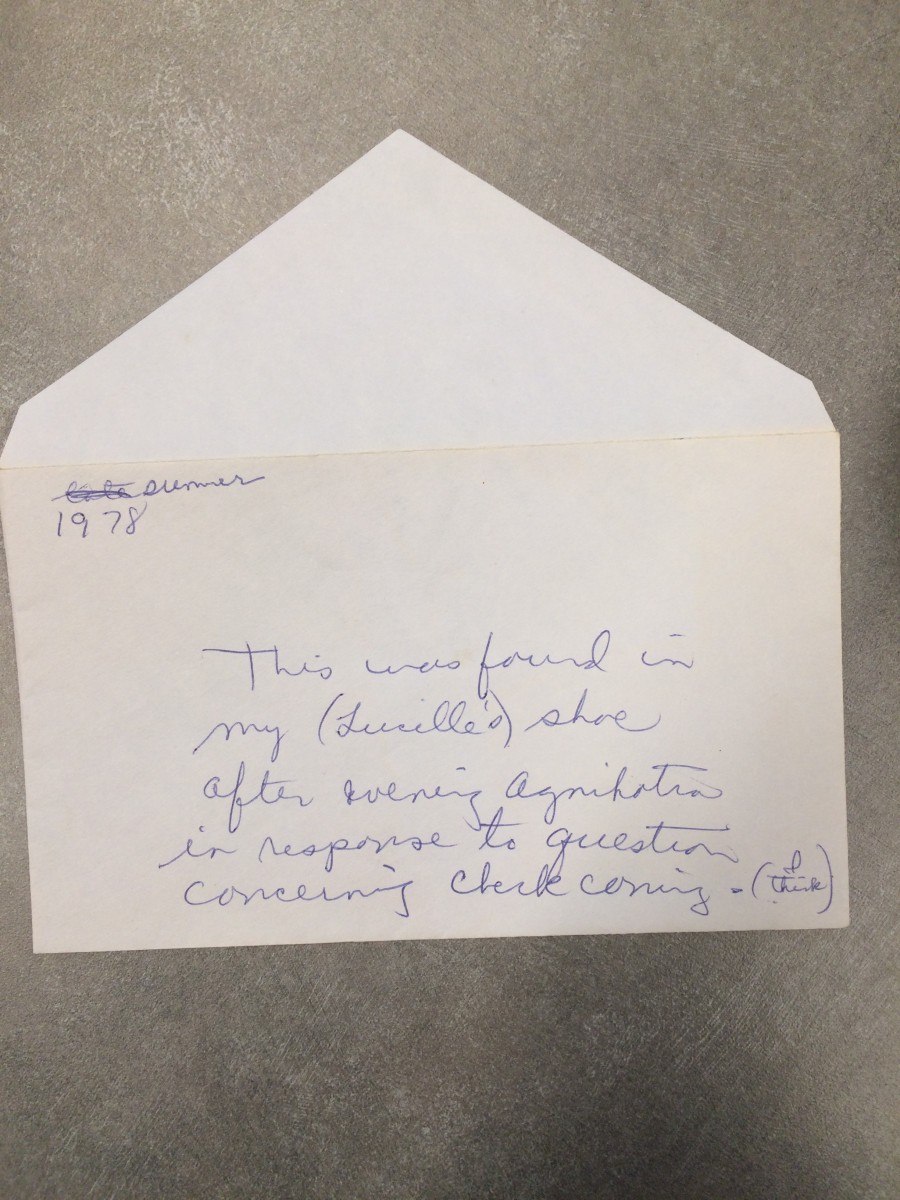 late summer
1978
This was found in
my (Lucille's) shoe
after evening Agnihotra
in response to question
concerning check coming - (I think)